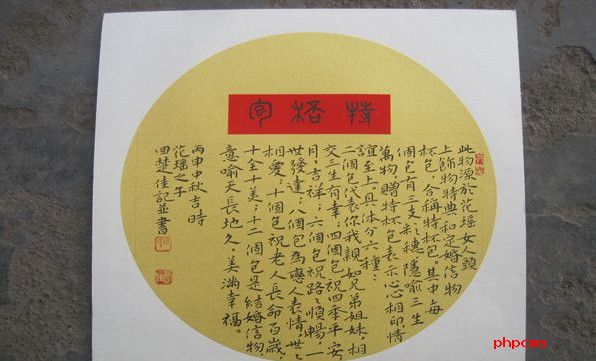 特
此物源於花瑶女人頭
上飾物特典和定婚信物
杯包，合稱特杯包，其中每
個包有三支彩穗，隱喻三生
萬物，贈特杯包表示心心相印情
誼至上，具体分六種：
二個包代表你我親如兄弟姐妹相
交三生有幸，四個包祝四季平安
月月吉祥；六個包祝路路順暢，一
世發達；八個包為戀人表情，世世
相愛，十個包祝老人長命百歲
十全十美；十二個包是結婚信物
意喻天長地久，美滿幸福。
丙申中秋吉時
花瑶之子
田楚佳記並書
phpcms